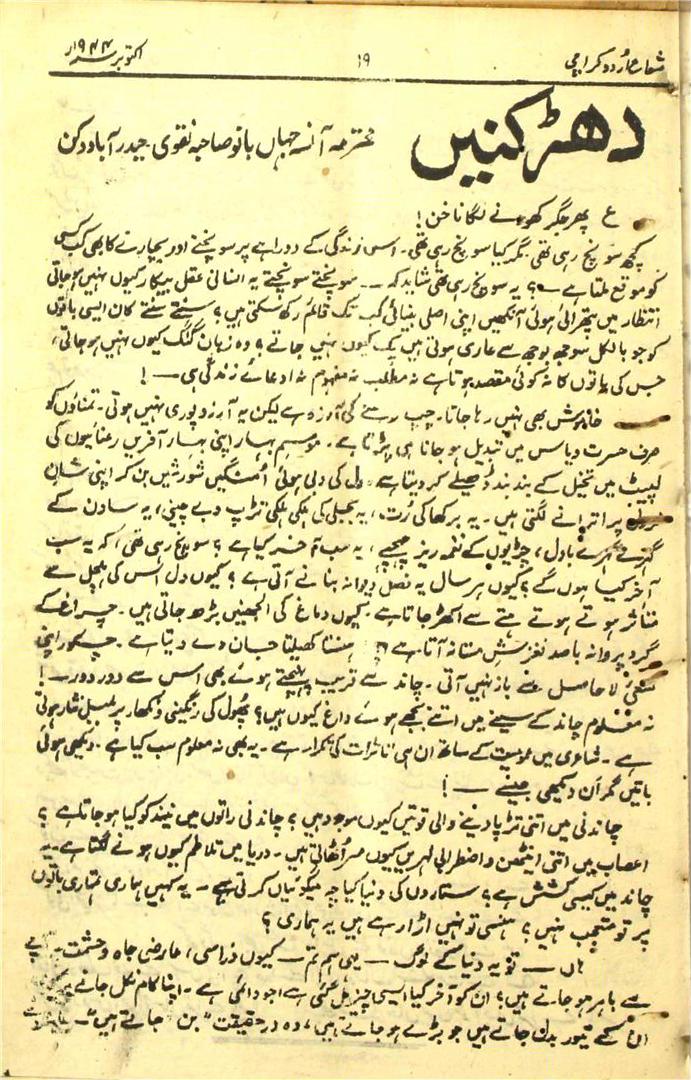 شعاع اردو کراچی
۱۹
اکتوبر سنہ ۱۹۴۴ء
دھڑکنیں
محترمہ آنسہ جہاں بانو صاحبہ نقوی۔ حیدرآباد دکن
ع پھر جگر کھودنے لگا ناخن!
کچھ سونچ رہی تھی مگر کیا سونچ رہی تھی۔ اس زندگی کے دوراہے پر سونچنے اور بچارنے کا بھی کب کسی
کو موقع ملتا ہے ۔؟ یہ سونچ رہی تھی شاید کہ ۔۔ سونچتے سونچتے یہ انسانی عقل بیکار کیوں نہیں ہو جاتی
انتظار میں پتھرائی ہوئی آنکھیں اپنی اصلی بینائی کب تک قائم رکھ سکتی ہیں؟ سنتے سنتے کان ایسی باتوں
کو جو بالکل سوجھ بوجھ سے عاری ہوتی ہیں پک کیوں نہیں جاتے؟ وہ زبان گنگ کیوں نہیں ہو جاتی،
جس کی باتوں کا نہ کوئی مقصد ہوتا ہے نہ مطلب نہ مفہوم نہ ادعائے زندگی ہی ۔ !
خاموش بھی نہیں رہا جاتا۔ چپ رہنے کی آرزو ہے لیکن یہ آرزو پوری نہیں ہوتی۔ تمناؤں کو
صرف حسرت و یاس میں تبدیل ہو جانا ہی پڑتا ہے۔ موسم بہار اپنی بہار آفریں رعنائیوں کی
لپیٹ میں تخیل کے بند بند ڈھیلے کر دیتا ہے۔ دل کی دبی ہوئی امنگیں شورشیں بن کر اپنی شان
پر اترانے لگتی ہیں۔ یہ برکھا کی رُت، یہ بجلی کی ہلکی ہلکی تڑپ و بے چینی، یہ ساون کے
گہرے گہرے بادل، چڑیوں کے نغمہ ریز چہچہے، یہ سب آخر کیا ہے؟ سونچ رہی تھی، کہ یہ سب
آخر کیا ہوں گے؟ کیوں ہر سال یہ فصل دیوانہ بنانے آتی ہے؟ کیوں دل اس کی ہلچل سے
متاثر ہوتے ہوتے ہتے سے اکھڑ جاتا ہے۔ کیوں دماغ کی الجھنیں بڑھ جاتی ہیں۔ چراغ کے
گرد پروانہ باصد لغزش مستانہ آتا ہے ہنستا کھیلتا جان دے دیتا ہے۔ چکور اپنی
سعیٔ لاحاصل سے باز نہیں آتی۔ چاند سے قریب پہنچتے ہوئے بھی اس سے دور دور ۔ !
نہ معلوم چاند کے سینے میں اتنے بجھے ہوئے داغ کیوں ہیں؟ پھول کی رنگینی و نکھار پر بلبل نثار ہوتی
ہے۔ شاعری میں عمومیت کے ساتھ ان ہی تاثرات کی تکرار ہے۔ یہ بھی نہ معلوم سب کیا ہے۔ دیکھی ہوئی
باتیں مگر ان دیکھی جیسے ۔ !
چاندنی میں اتنی تڑپا دینے والی قوتیں کیوں موجود ہیں؟ چاندنی راتوں میں نیند کو کیا ہو جاتا ہے؟
اعصاب میں اتنی اینٹھن و اضطرابی لہریں کیوں سر اُٹھاتی ہیں۔ دریا میں تلاطم کیوں ہونے لگتا ہے۔ یہ
چاند میں کیسی کشش ہے؟ ستاروں کی دنیا کیا چہ میگوئیاں کرتی ہے۔ یہ کہیں ہماری تمہاری باتوں
پر تو متعجب نہیں؟ ہنسی تو نہیں اڑا رہے ہیں یہ ہماری؟
ہاں ۔ تو یہ دنیا کے لوگ ۔ یہی ہم تم ۔ کیوں ذرا سی، عارضی جاہ و حشمت پہ آپے
سے باہر ہو جاتے ہیں؟ ان کو آخر کیا ایسی چیز مل گئی ہے جو دائمی ہے۔ اپنا کام نکل جانے پر
ان کے تیور بدل جاتے ہیں جو بڑے ہو جاتے ہیں، وہ درحقیقت "بن" جاتے ہیں۔